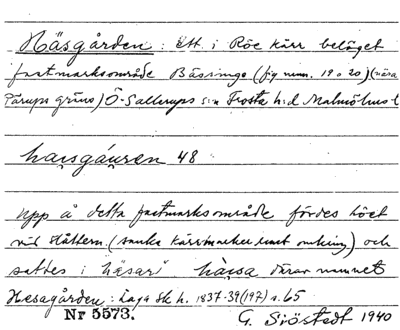 Häsgården: Ett i Röe kärr beläget
fastmarksområde Bässinge (fig num. 19 o 20) (nära
Pårups gräns) Ö-Sallerups s:n Frosta h:d Malmöhus l
48
upp å detta fastmarksområde fördes höet
vid slåttern (sanka kärrmarker runt omkring) och
sattes i "häsar" därav namnet
Hesagården: Laga sk h. 1837-39 (197) s. 65
Nr 5573. G. Sjöstedt 1940